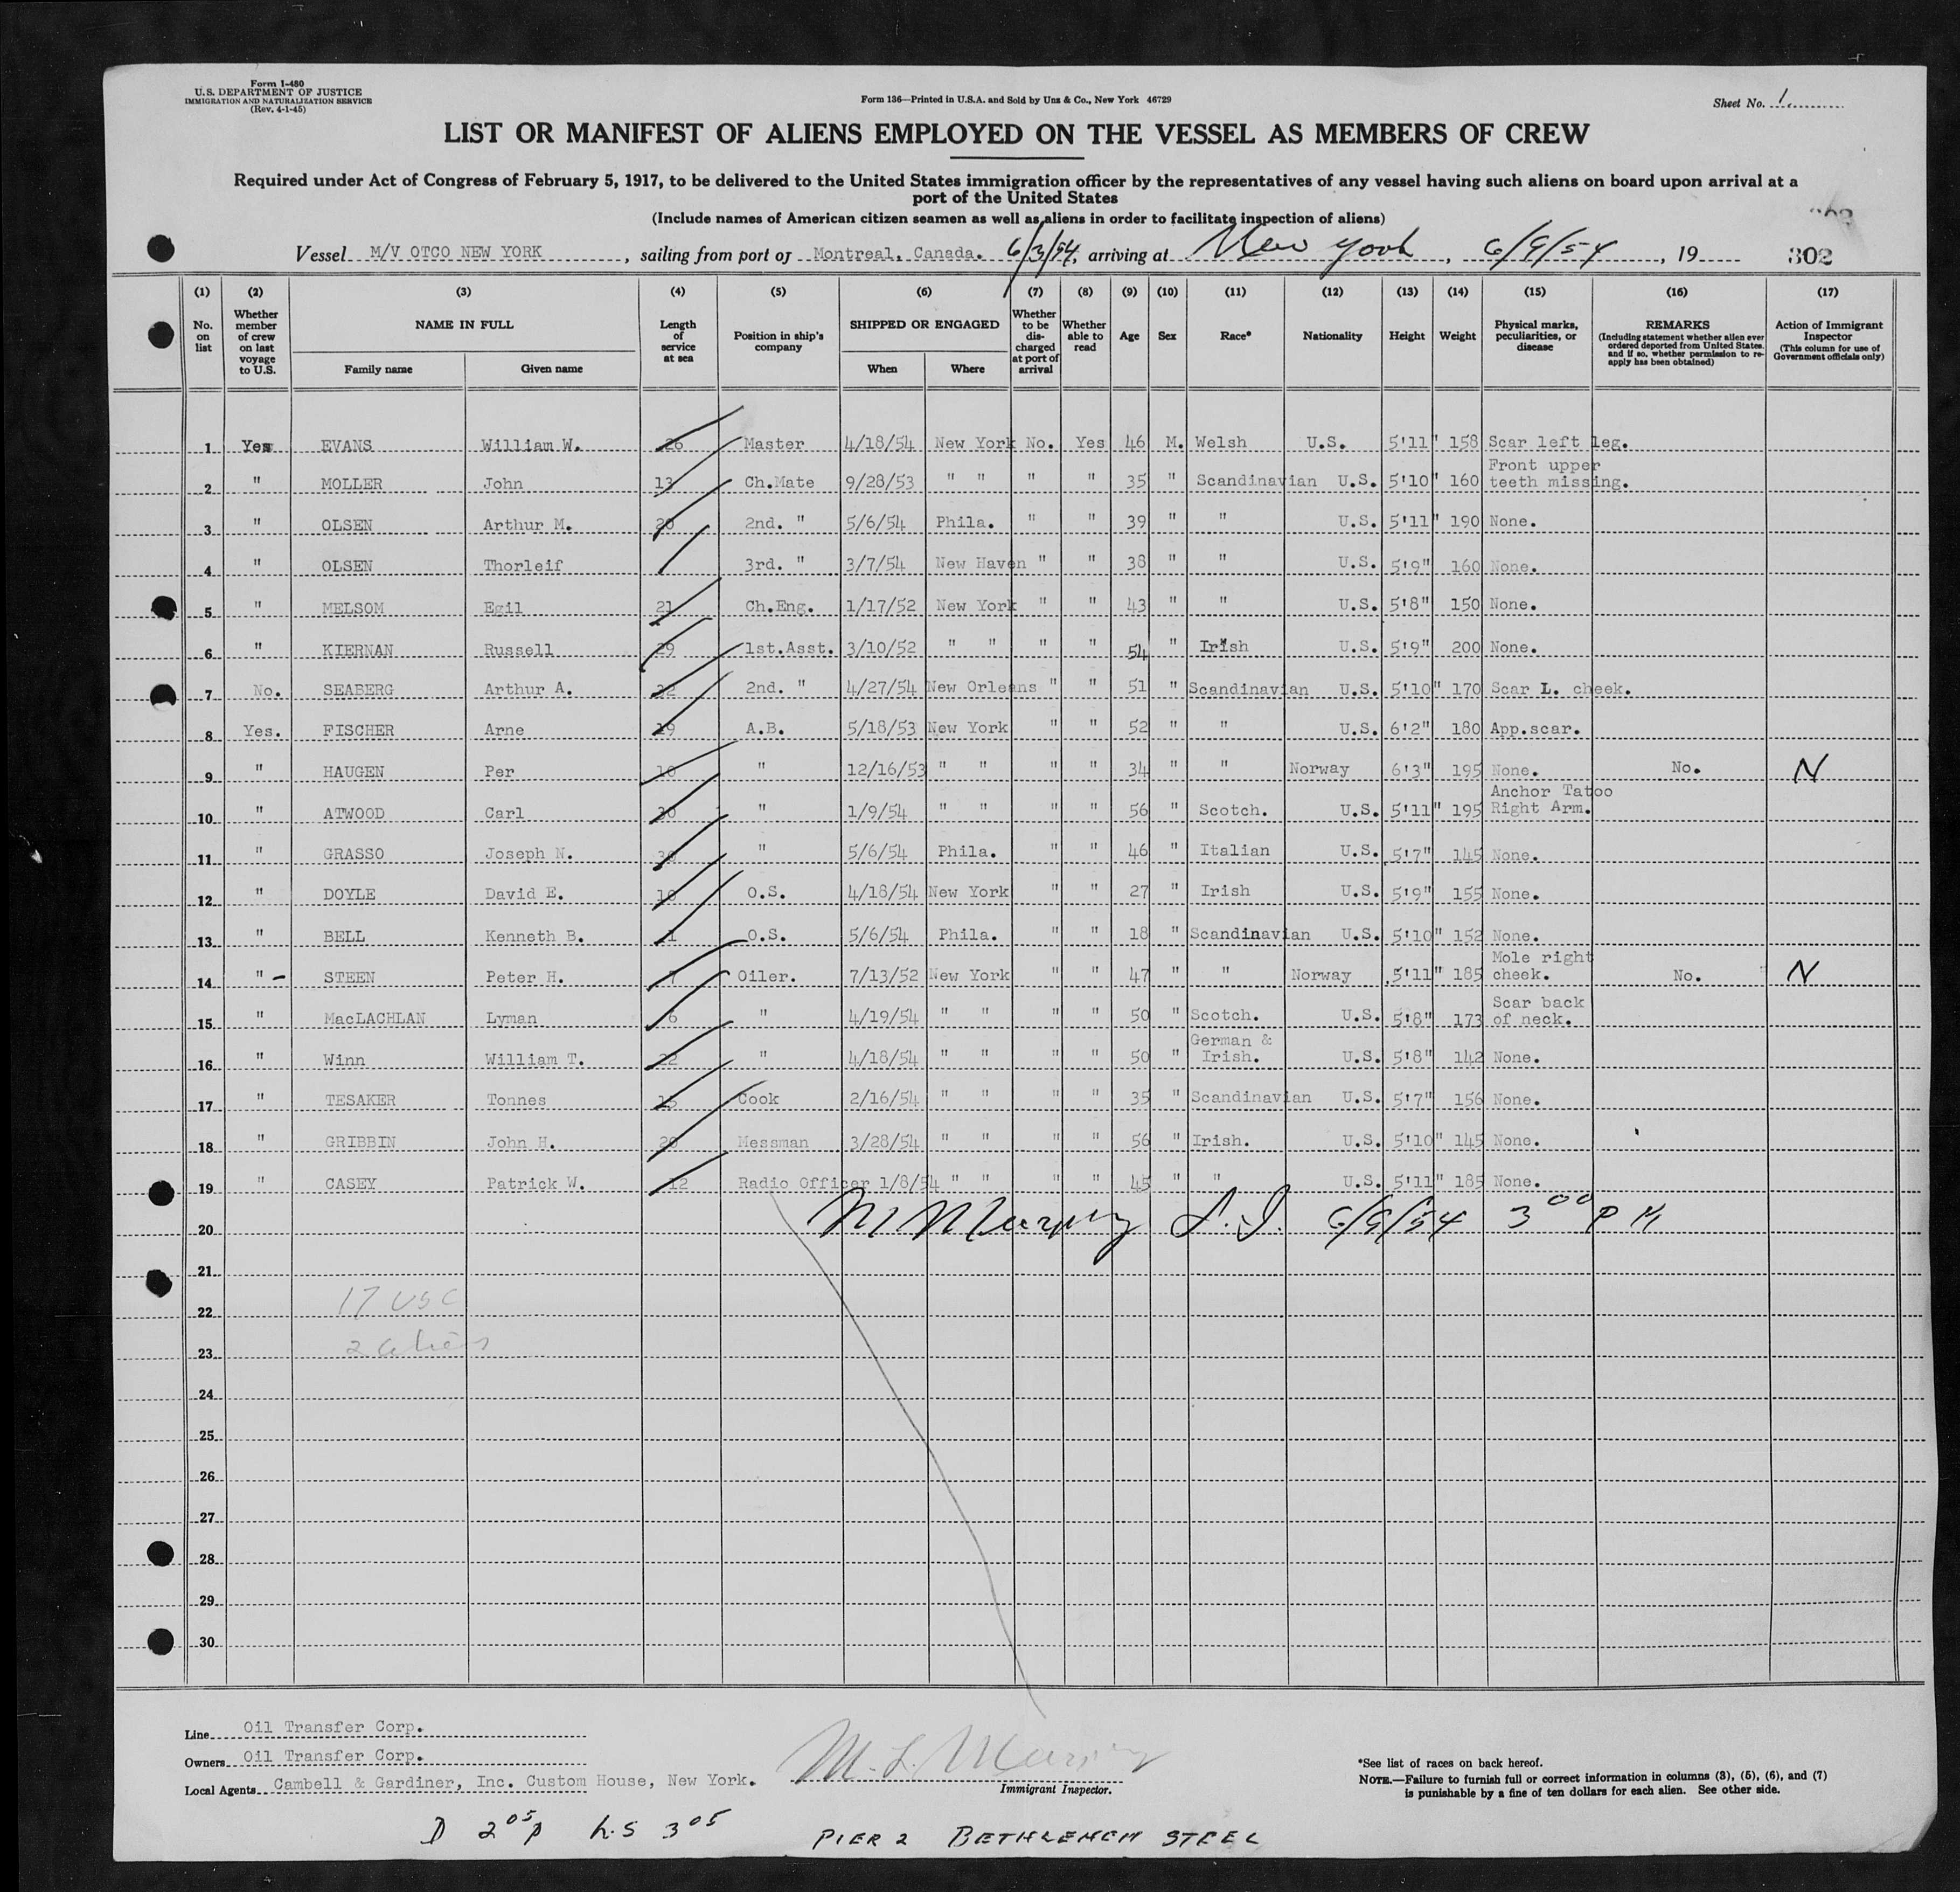 Form I-480
U.S. DEPARTMENT OF JUSTICE
IMMIGRATION AND NATURALIZATION SERVICE
(Rev. 4-1-45)
Form 136—Printed in U.S.A. and Sold by Unz & Co., New York 46729
Sheet No. 1.
LIST OR MANIFEST OF ALIENS EMPLOYED ON THE VESSEL AS MEMBERS OF CREW
Required under Act of Congress of February 5, 1917, to be delivered to the United States immigration officer by the representatives of any vessel having such aliens on board upon arrival at a
port of the United States
(Include names of American citizen seamen as well as aliens in order to facilitate inspection of aliens)
Vessel M/V OTCO NEW YORK, sailing from port of Montreal, Canada. 6/3/54, arriving at New York, 6/9/54, 19 302
(1) (2) (3) (4) (5) (6) (7) (8) (9) (10) (11) (12) (13) (14) (15) (16) (17)
No. on list
Whether member of crew on last voyage to U.S.
NAME IN FULL
Family name Given name
Length of service at sea
Position in ship's company
SHIPPED OR ENGAGED
When Where
Whether to be discharged at port of arrival
Whether able to read
Age
Sex
Race*
Nationality
Height
Weight
Physical marks, peculiarities, or disease
REMARKS
(Including statement whether alien ever ordered deported from United States, and if so, whether permission to re-apply has been obtained)
Action of Immigrant Inspector
(This column for use of Government officials only)
1 Yes EVANS William W. 26 Master 4/18/54 New York No. Yes 46 M. Welsh U.S. 5'11" 158 Scar left leg.
2 " MOLLER John 13 Ch.Mate 9/28/53 " " " " 35 " Scandinavian U.S. 5'10" 160 Front upper teeth missing.
3 " OLSEN Arthur M. 20 2nd. " 5/6/54 Phila. " " 39 " " U.S. 5'11" 190 None.
4 " OLSEN Thorleif 3rd. " 3/7/54 New Haven " " 38 " " U.S. 5'9" 160 None.
5 " MELSOM Egil 21 Ch.Eng. 1/17/52 New York " " 43 " " U.S. 5'8" 150 None.
6 " KIERNAN Russell 29 1st.Asst. 3/10/52 " " " " 54 " Irish U.S. 5'9" 200 None.
7 No. SEABERG Arthur A. 2nd. " 4/27/54 New Orleans " " 51 " Scandinavian U.S. 5'10" 170 Scar L. cheek.
8 Yes. FISCHER Arne 19 A.B. 5/18/53 New York " " 52 " " U.S. 6'2" 180 App.scar.
9 " HAUGEN Per 10 " 12/16/53 " " " " 34 " " Norway 6'3" 195 None. No. N
10 " ATWOOD Carl 30 " 1/9/54 " " " " 56 " Scotch. U.S. 5'11" 195 Anchor Tatoo Right Arm.
11 " GRASSO Joseph N. " 5/6/54 Phila. " " 46 " Italian U.S. 5'7" 145 None.
12 " DOYLE David E. 10 O.S. 4/18/54 New York " " 27 " Irish U.S. 5'9" 155 None.
13 " BELL Kenneth B. 1 O.S. 5/6/54 Phila. " " 18 " Scandinavian U.S. 5'10" 152 None.
14 " - STEEN Peter H. 7 Oiler. 7/13/52 New York " " 47 " " Norway 5'11" 185 Mole right cheek. No. N
15 " MacLACHLAN Lyman 6 " 4/19/54 " " " " 50 " Scotch. U.S. 5'8" 173 Scar back of neck.
16 " Winn William T. 22 " 4/18/54 " " " " 50 " German & Irish. U.S. 5'8" 142 None.
17 " TESAKER Tonnes 15 Cook 2/16/54 " " " " 35 " Scandinavian U.S. 5'7" 156 None.
18 " GRIBBIN John H. 20 Messman 3/28/54 " " " " 56 " Irish. U.S. 5'10" 145 None.
19 " CASEY Patrick W. 12 Radio Officer 1/8/54 " " " " 45 " " U.S. 5'11" 185 None.
20 6/9/54 3 00 PM
21
22 17 USC
23 2 aliens
24
25
26
27
28
29
30
Line Oil Transfer Corp.
Owners Oil Transfer Corp.
Local Agents Cambell & Gardiner, Inc. Custom House, New York.
Immigrant Inspector.
*See list of races on back hereof.
NOTE.—Failure to furnish full or correct information in columns (3), (5), (6), and (7)
is punishable by a fine of ten dollars for each alien. See other side.
D 2 05 P L.S 3 05 PIER 2 BETHLEHEM STEEL